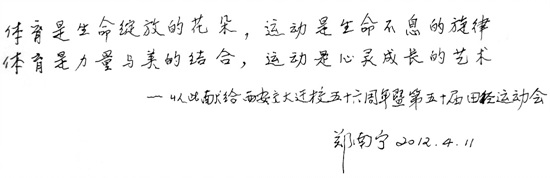 体育是生命绽放的花朵，运动是生命不息的旋律
体育是力量与美的结合，运动是心灵成长的艺术
—以此献给西安交大迁校五十六周年暨第五十届田径运动会
郑南宁 2012.4.11